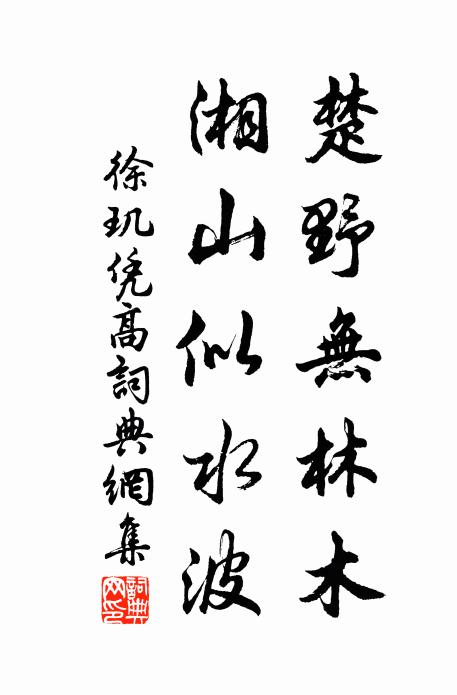 楚野無林木
湘山似水波
徐玑凭高詞典網集
詞典网印